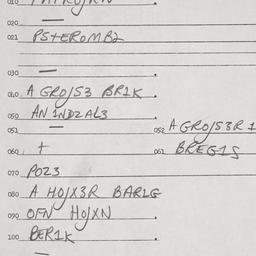 010
020 —
021 PS+EROMB2
030 — .
040 A GROJS3 BR1K .
050 AN 1ND2AL3 .
051 052 A GROJS3R 1
060 + 061 BREG1S
070 POZ3
080 A HOJX3R BAR1G
090 OFN HOJXN .
100 BER1K .
—